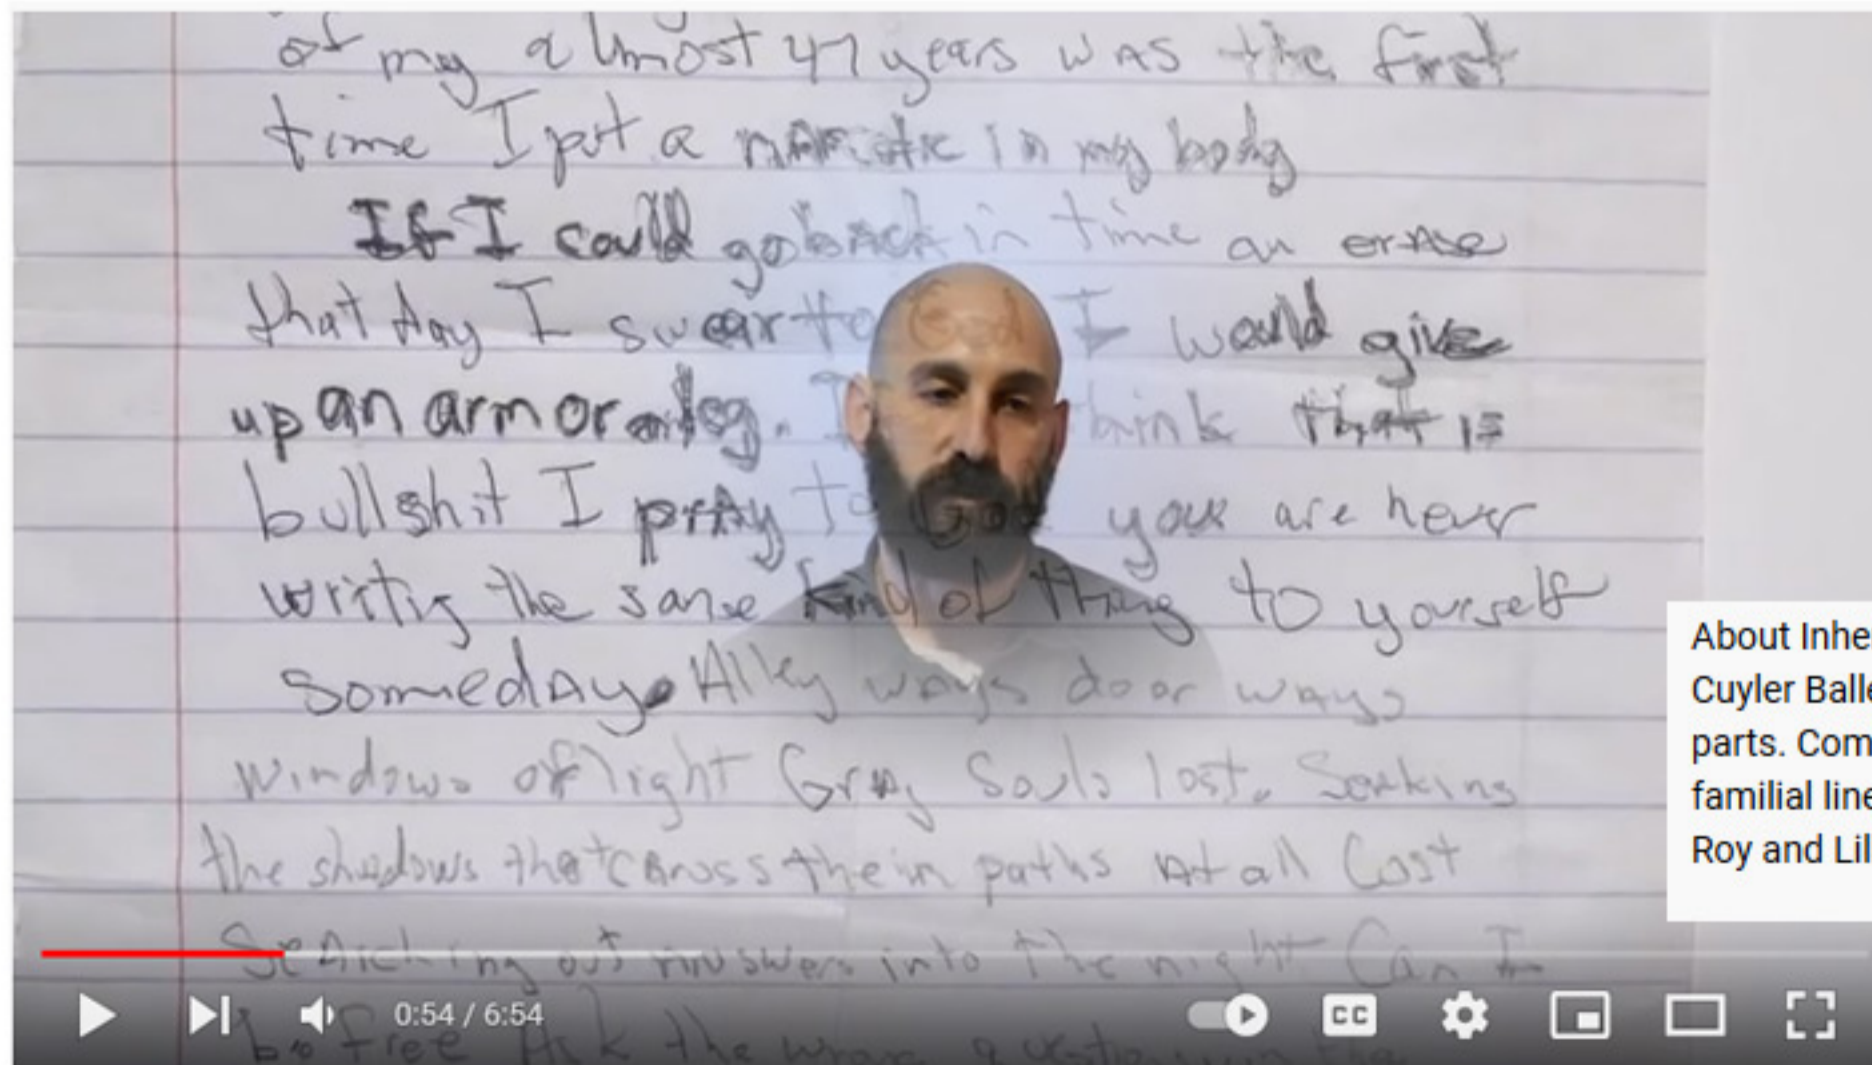 of my almost 47 years was the first
time I put a narcotic in my body
If I could go back in time an erase
that day I swear to God I would give
up an arm or leg. I think that is
bullshit I pray to God your are never
writing the same kind of thing to yourself
someday. Alley ways door ways
windows of light Gray Souls lost. Seeking
the shadows that cross their paths At all Cost
Searching out answers into the night Can I
be free Ask the wrong questions in the
0:54 / 6:54
CC
About Inhe
Cuyler Balle
parts. Com
familial line
Roy and Lil